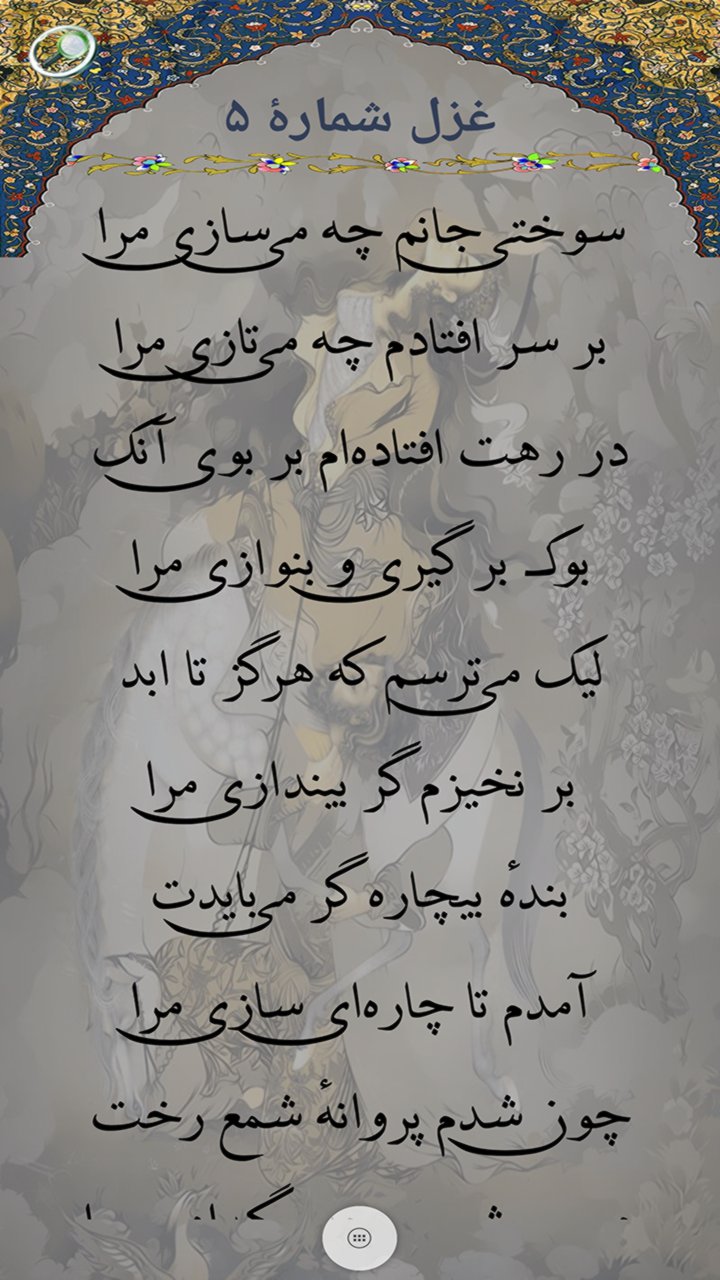 غزل شمارهٔ ۵
سوختی جانم چه می‌سازی مرا
بر سر افتادم چه می‌تازی مرا
در رهت افتاده‌ام بر بوی آنک
بوک بر گیری و بنوازی مرا
لیک می‌ترسم که هرگز تا ابد
بر نخیزم گر بیندازی مرا
بندهٔ بیچاره گر می‌بایدت
آمدم تا چاره‌ای سازی مرا
چون شدم پروانهٔ شمع رخت